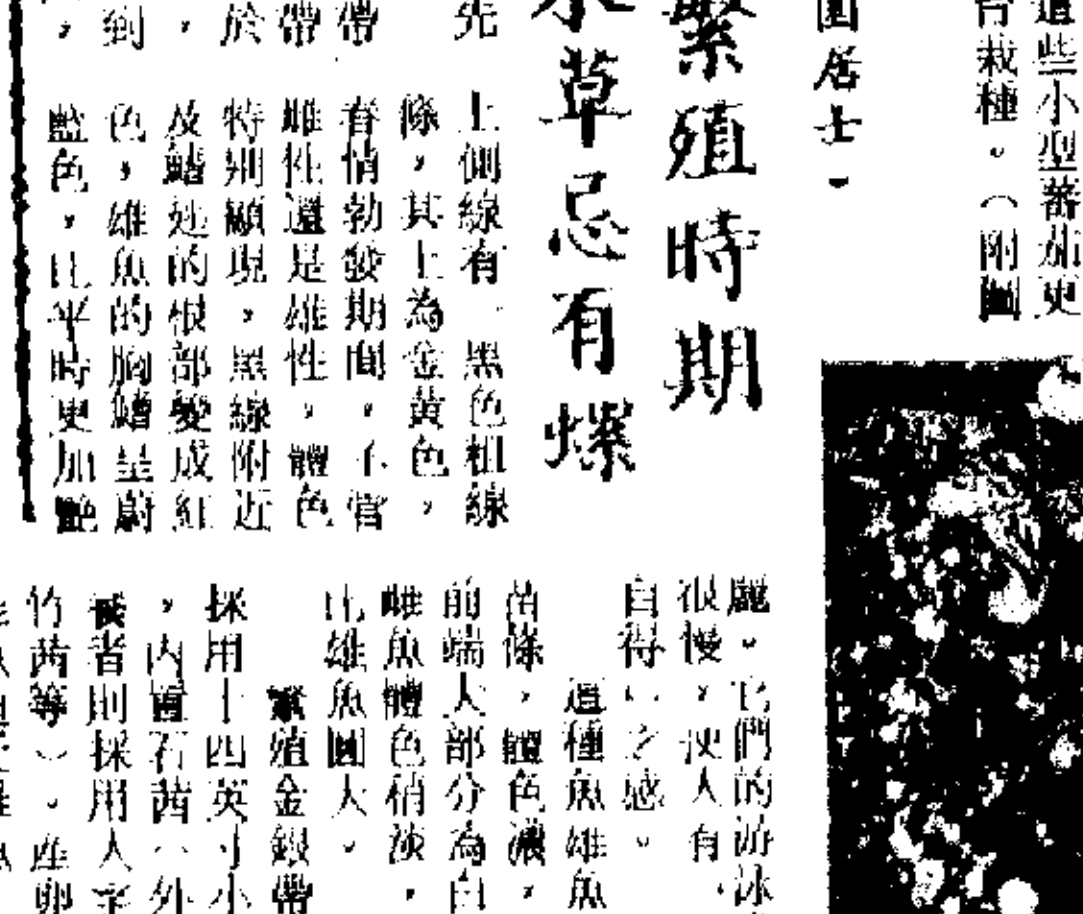 這些小型蕃茄更
台栽種。（附圖
園居士
繁殖時期
水草忌有螺
先
上側線有一黑色粗線
帶
條，其上為金黃色，
帶
春情勃發期間，不管
於
雌性還是雄性，體色
，
特別顯現，黑線附近
到
及鰭近的根部變成紅
，
色，雄魚的胸鰭呈蔚
藍色，比平時更加艷
麗。它們的游泳
很慢，使人有，
自得」之感。
這種魚雄魚
苗條，體色濃，
前端大部分為白
雌魚體色稍淡，
比雄魚圓大。
繁殖金銀帶
採用十四英寸小
，內置石茜（外
後者則採用人字
竹茜等）。產卵